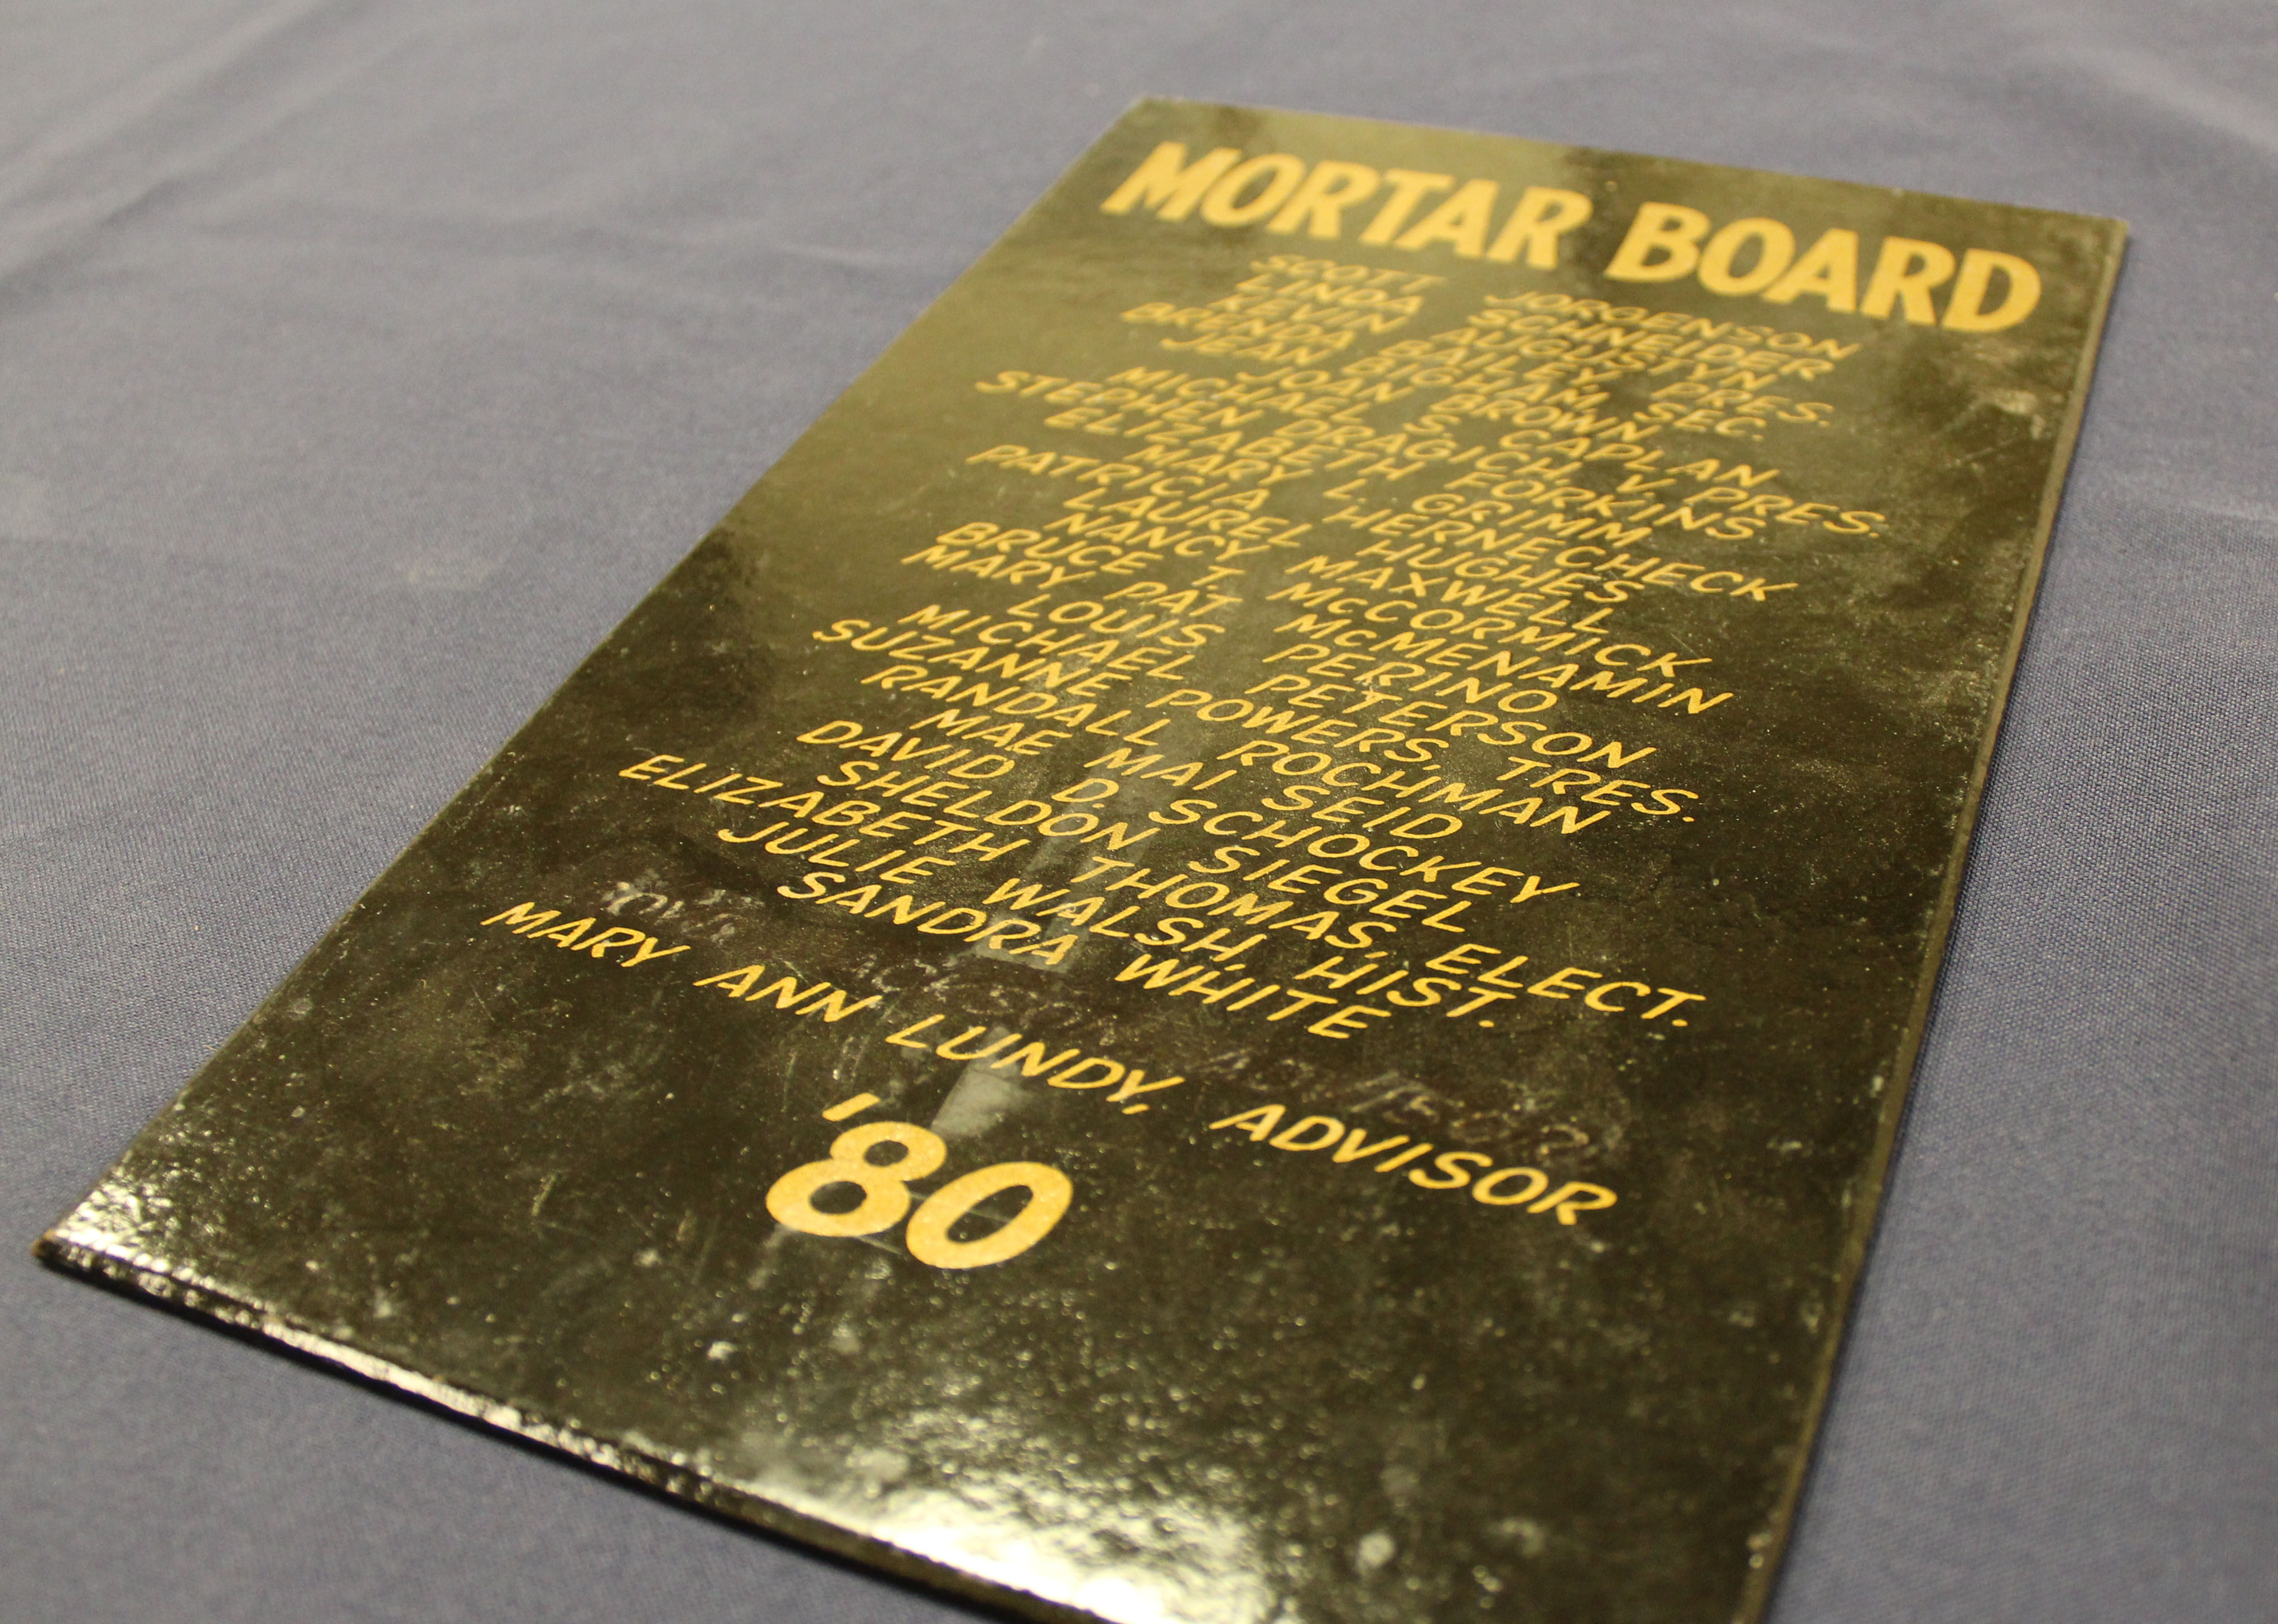 MORTAR BOARD
SCOTT JORGENSON
LINDA SCHNEIDER
KEVIN AUGUSTYN
BRENDA BAILEY, PRES.
JEAN BIGHAM, SEC.
JOAN BROWN
MICHAEL S. CAPLAN
STEPHEN DRAGICH, V. PRES.
ELIZABETH FORKINS
MARY L. GRIMM
PATRICIA HERNECHECK
LAUREL HUGHES
NANCY MAXWELL
BRUCE T. McCORMICK
MARY PAT McMENAMIN
LOUIS PERINO
MICHAEL PETERSON
SUZANNE POWERS, TRES.
RANDALL ROCHMAN
MAE MAI SEID
DAVID D. SCHOCKEY
SHELDON SIEGEL
ELIZABETH THOMAS, ELECT.
JULIE WALSH, HIST.
SANDRA WHITE
MARY ANN LUNDY, ADVISOR
'80